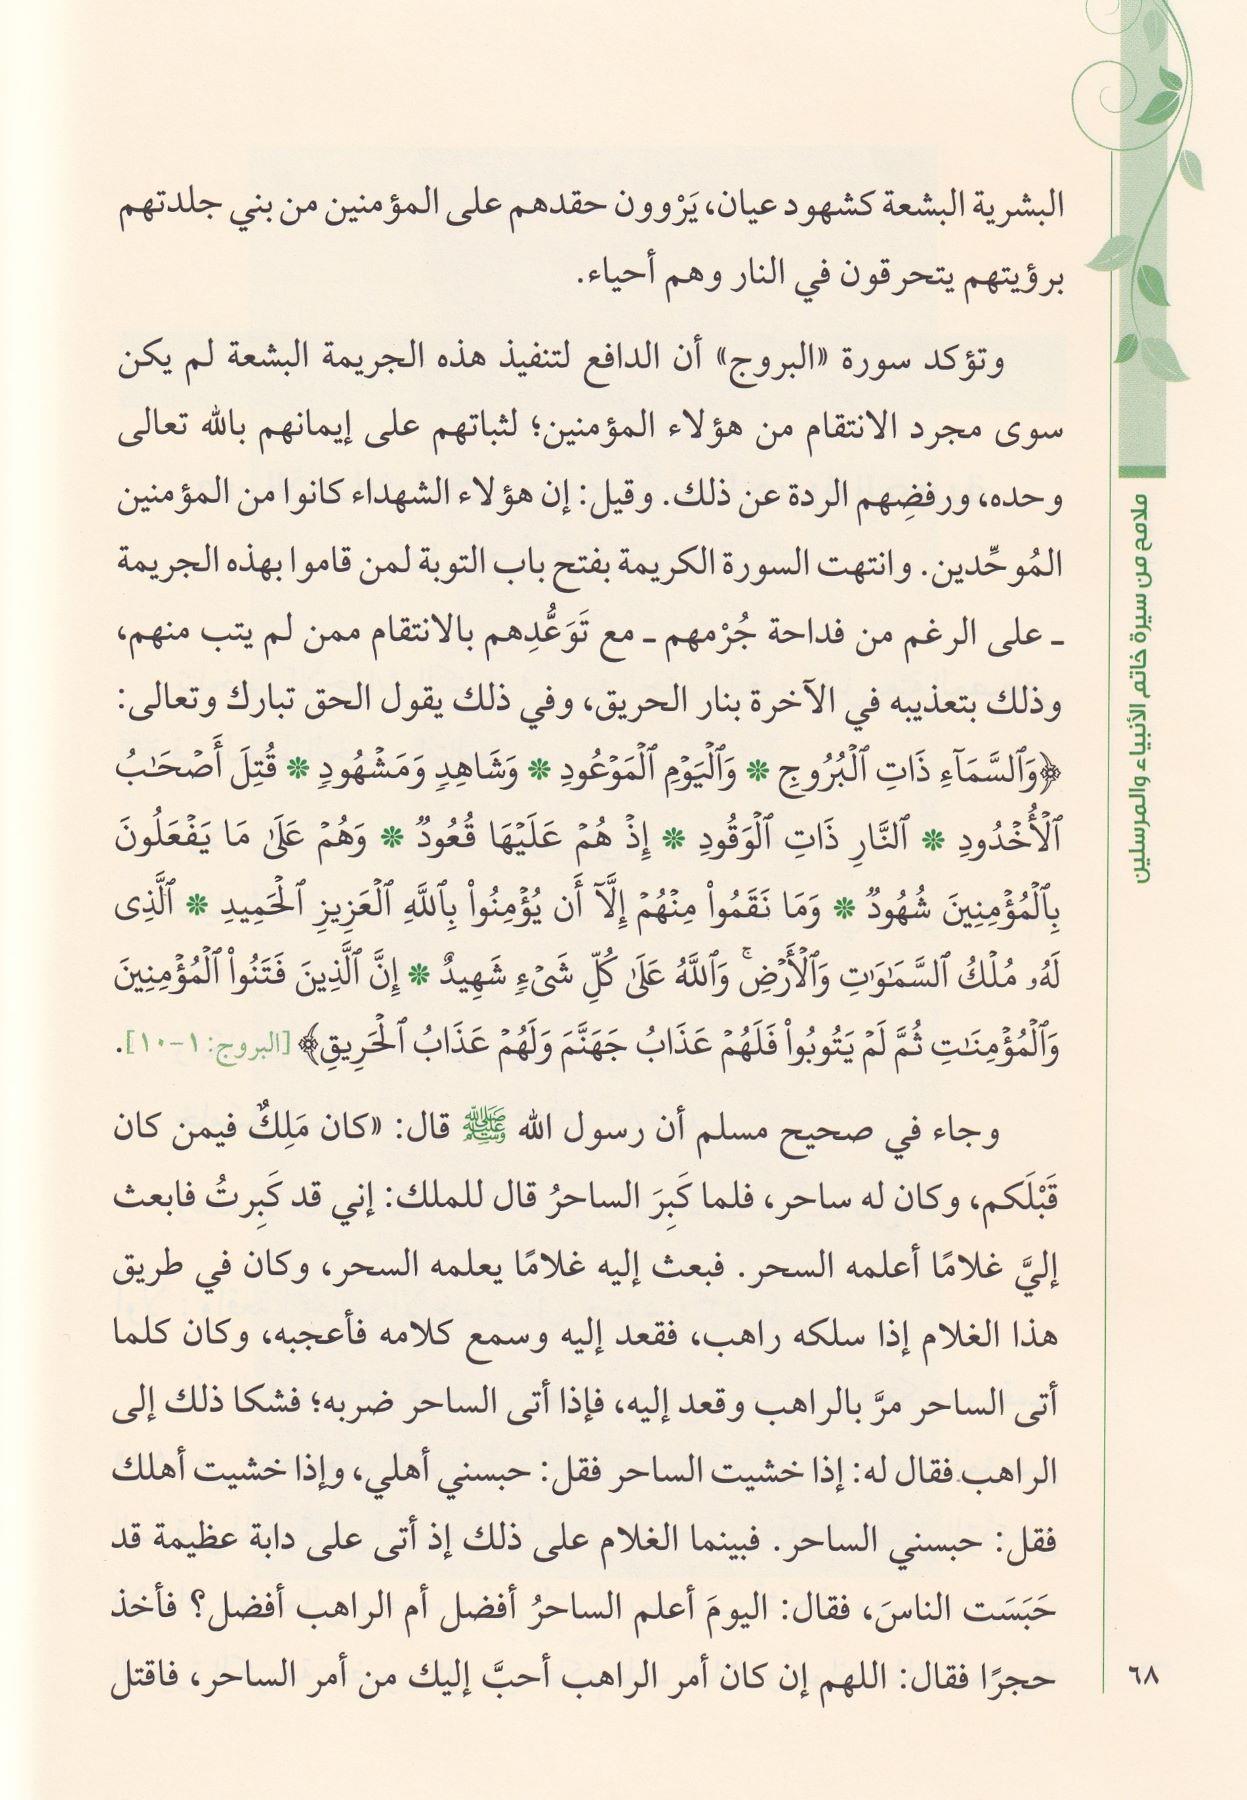 البشرية البشعة كشهود عيان، يَرْوون حقدهم على المؤمنين من بني جلدتهم
برؤيتهم يتحرقون في النار وهم أحياء.
وتؤكد سورة «البروج» أن الدافع لتنفيذ هذه الجريمة البشعة لم يكن
سوى مجرد الانتقام من هؤلاء المؤمنين؛ لثباتهم على إيمانهم بالله تعالى
وحده، ورفضِهم الردة عن ذلك. وقيل: إن هؤلاء الشهداء كانوا من المؤمنين
المُوحِّدين. وانتهت السورة الكريمة بفتح باب التوبة لمن قاموا بهذه الجريمة
ـ على الرغم من فداحة جُرْمهم ـ مع تَوَعُّدِهم بالانتقام ممن لم يتب منهم،
وذلك بتعذيبه في الآخرة بنار الحريق، وفي ذلك يقول الحق تبارك وتعالى:
﴿وَٱلسَّمَآءِ ذَاتِ ٱلْبُرُوجِ * وَٱلْيَوْمِ ٱلْمَوْعُودِ * وَشَاهِدٍ وَمَشْهُودٍ * قُتِلَ أَصْحَٰبُ
ٱلْأُخْدُودِ * ٱلنَّارِ ذَاتِ ٱلْوَقُودِ * إِذْ هُمْ عَلَيْهَا قُعُودٌ * وَهُمْ عَلَىٰ مَا يَفْعَلُونَ
بِٱلْمُؤْمِنِينَ شُهُودٌ * وَمَا نَقَمُوا۟ مِنْهُمْ إِلَّآ أَن يُؤْمِنُوا۟ بِٱللَّهِ ٱلْعَزِيزِ ٱلْحَمِيدِ * ٱلَّذِى
لَهُۥ مُلْكُ ٱلسَّمَٰوَٰتِ وَٱلْأَرْضِ ۚ وَٱللَّهُ عَلَىٰ كُلِّ شَىْءٍ شَهِيدٌ * إِنَّ ٱلَّذِينَ فَتَنُوا۟ ٱلْمُؤْمِنِينَ
وَٱلْمُؤْمِنَٰتِ ثُمَّ لَمْ يَتُوبُوا۟ فَلَهُمْ عَذَابُ جَهَنَّمَ وَلَهُمْ عَذَابُ ٱلْحَرِيقِ﴾ [البروج: ١-١٠].
وجاء في صحيح مسلم أن رسول الله ﷺ قال: «كان مَلِكٌ فيمن كان
قَبْلَكم، وكان له ساحر، فلما كَبِرَ الساحرُ قال للملك: إني قد كَبِرتُ فابعث
إليَّ غلامًا أعلمه السحر. فبعث إليه غلامًا يعلمه السحر، وكان في طريق
هذا الغلام إذا سلكه راهب، فقعد إليه وسمع كلامه فأعجبه، وكان كلما
أتى الساحر مرَّ بالراهب وقعد إليه، فإذا أتى الساحر ضربه؛ فشكا ذلك إلى
الراهب فقال له: إذا خشيت الساحر فقل: حبسني أهلي، وإذا خشيت أهلك
فقل: حبسني الساحر. فبينما الغلام على ذلك إذ أتى على دابة عظيمة قد
حَبَسَت الناسَ، فقال: اليومَ أعلم الساحرُ أفضل أم الراهب أفضل؟ فأخذ
حجرًا فقال: اللهم إن كان أمر الراهب أحبَّ إليك من أمر الساحر، فاقتل
ملامح من سيرة خاتم الأنبياء والمرسلين
٦٨